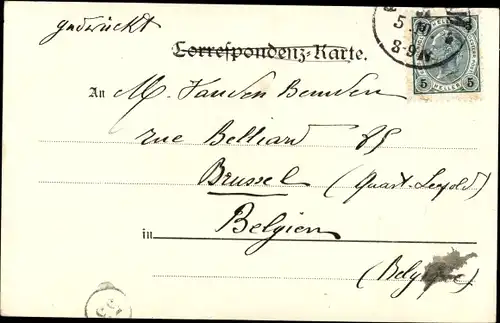 gedruckt
Correspondenz-Karte.
5
8-9N
5 HELLER 5
An M. Vanden Bemden
rue Belliard 85
Brussel (Quart. Leopold)
in Belgien
(Belgique)